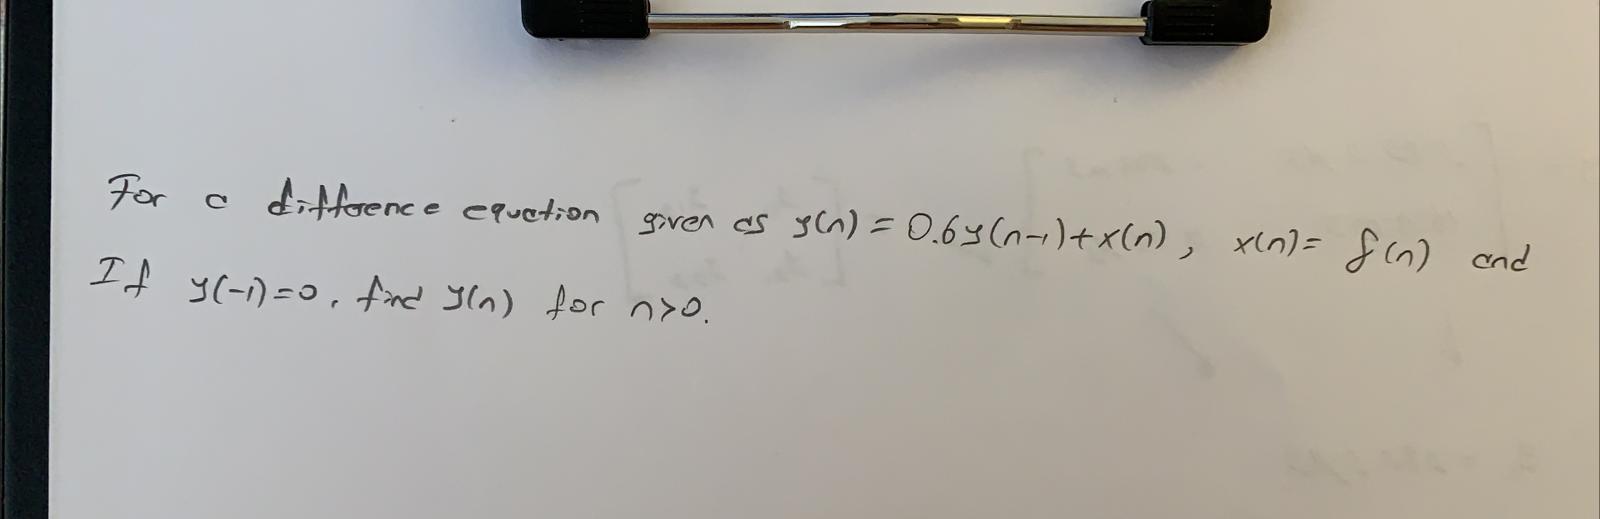 For a difference equation given as y(n) = 0.6y(n-1)+x(n), x(n)= δ(n) and
If y(-1)=0, find y(n) for n>0.